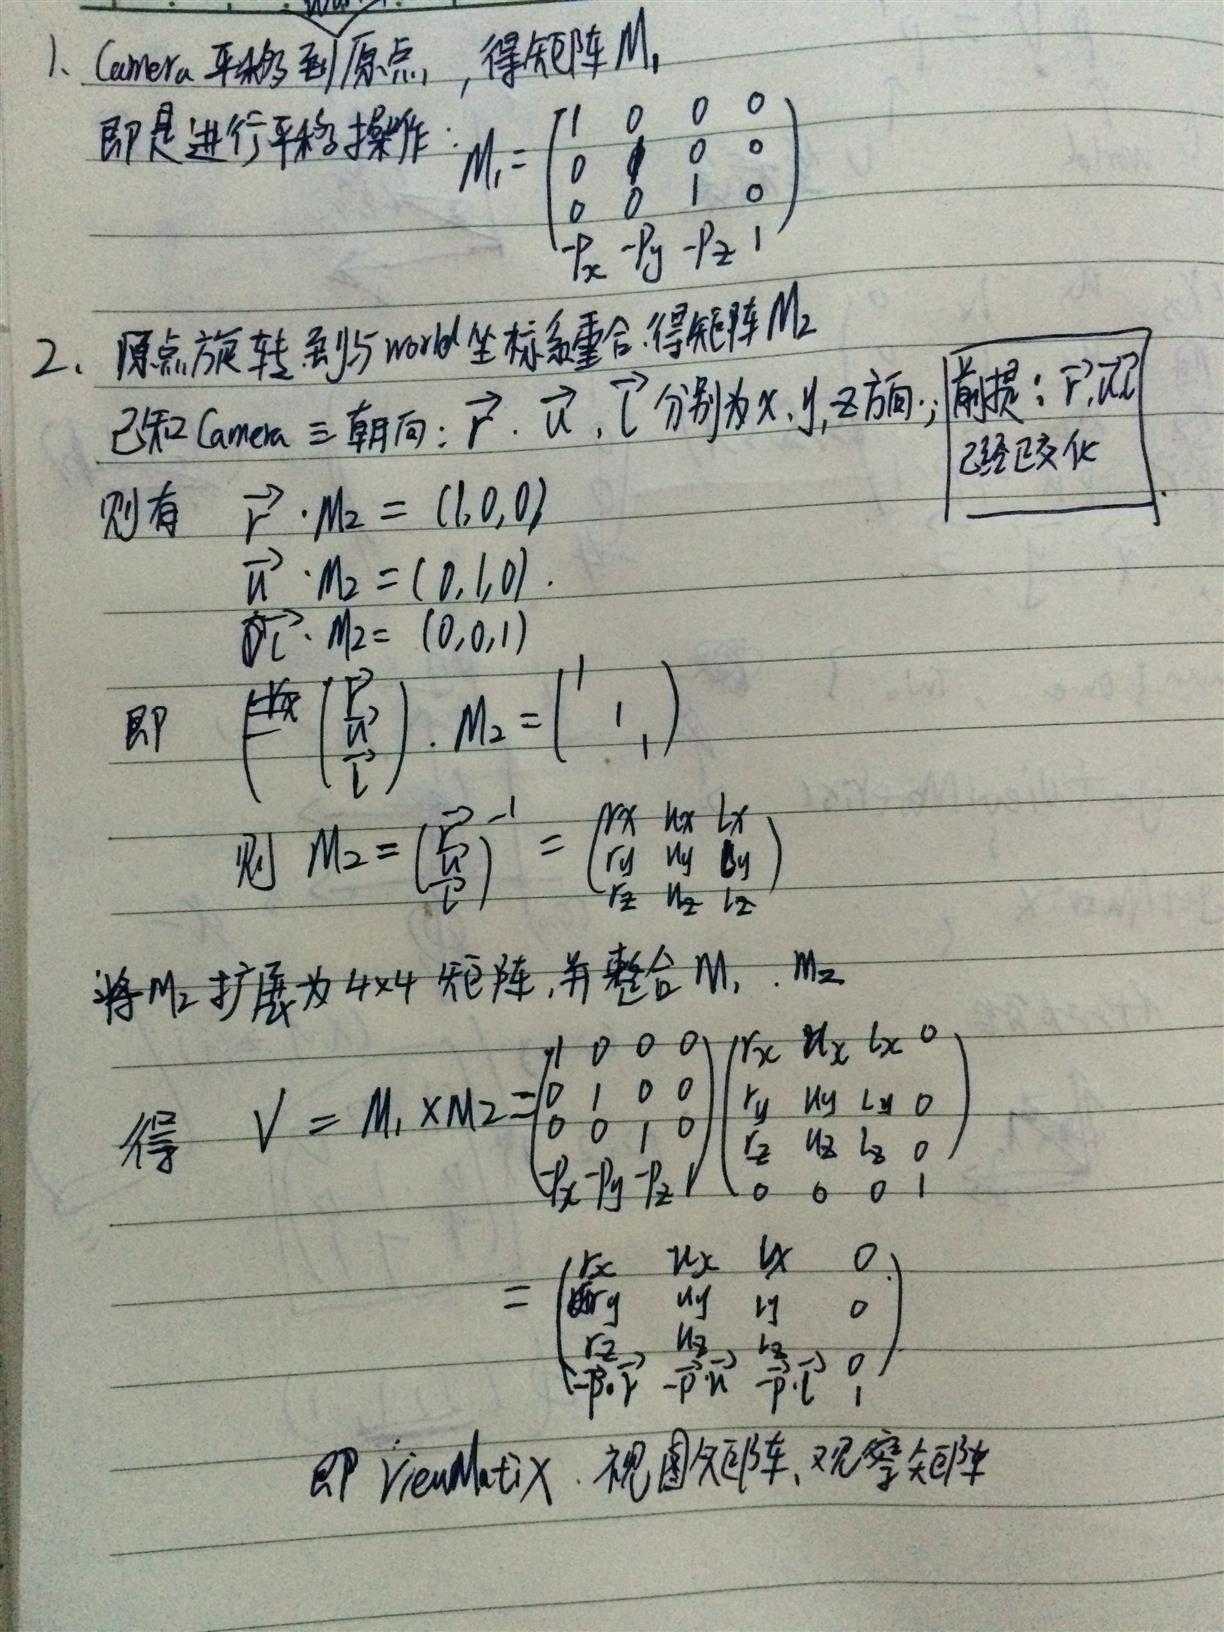 1、Camera 平移到原点，得矩阵 M₁
即是进行平移操作：
M₁ = ( 1 0 0 0
0 1 0 0
0 0 1 0
-Px -Py -Pz 1 )
2、原点旋转到与 world 坐标系重合.得矩阵 M₂
已知 Camera 三朝向: r⃗ . u⃗ , l⃗ 分别为 x、y, z 方向.;
前提: r⃗, u⃗ l⃗
已经正交化
则有 r⃗ · M₂ = (1,0,0)
u⃗ · M₂ = (0,1,0).
l⃗ · M₂ = (0,0,1)
即 ( r⃗ u⃗ l⃗ ) · M₂ = ( 1 1 1 )
则 M₂ = ( r⃗ u⃗ l⃗ )⁻¹ = ( rx ux lx
ry uy ly
rz uz lz )
将 M₂ 扩展为 4×4 矩阵,并整合 M₁ . M₂
得 V = M₁ × M₂ = ( 1 0 0 0 ) ( rx ux lx 0 )
( 0 1 0 0 ) ( ry uy ly 0 )
( 0 0 1 0 ) ( rz uz lz 0 )
( -Px -Py -Pz 1 ) ( 0 0 0 1 )
= ( rx ux lx 0
ry uy ly 0
rz uz lz 0
-p⃗·r⃗ -p⃗·u⃗ -p⃗·l⃗ 1 )
即 ViewMatix . 视图矩阵、观察矩阵